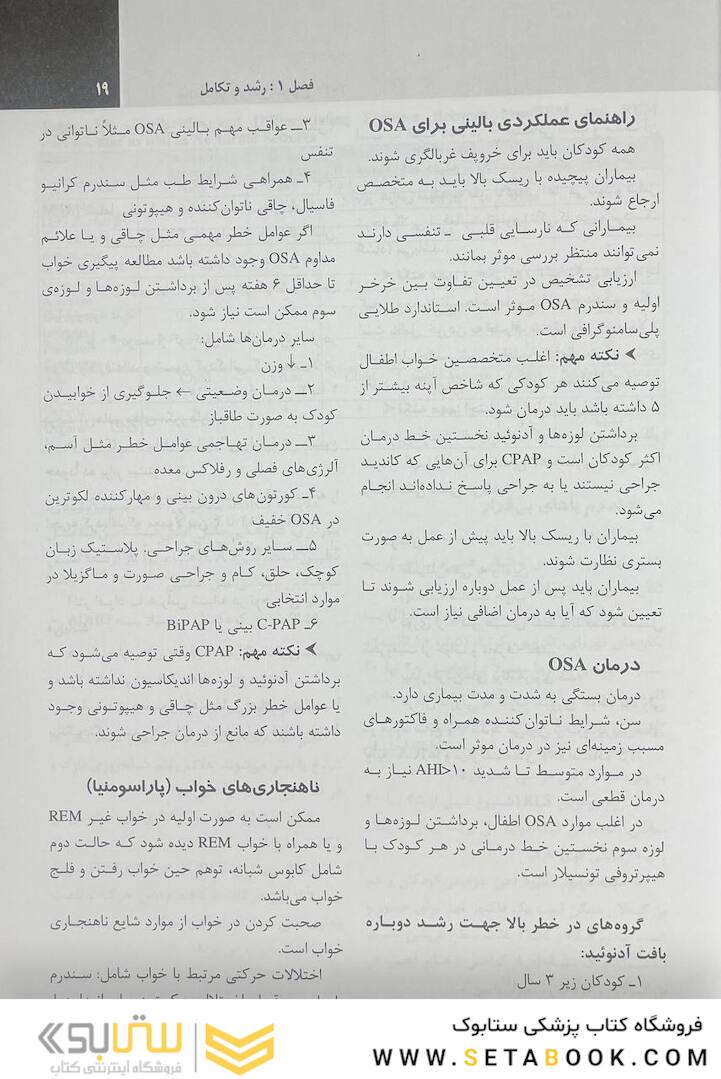 فصل ۱: رشد و تکامل
۱۹
راهنمای عملکردی بالینی برای OSA
همه کودکان باید برای خروپف غربالگری شوند.
بیماران پیچیده با ریسک بالا باید به متخصص
ارجاع شوند.
بیمارانی که نارسایی قلبی - تنفسی دارند
نمی‌توانند منتظر بررسی موثر بمانند.
ارزیابی تشخیص در تعیین تفاوت بین خرخر
اولیه و سندرم OSA موثر است. استاندارد طلایی
پلی‌سامنوگرافی است.
➤ نکته مهم: اغلب متخصصین خواب اطفال
توصیه می‌کنند هر کودکی که شاخص آپنه بیشتر از
۵ داشته باشد باید درمان شود.
برداشتن لوزه‌ها و آدنوئید نخستین خط درمان
اکثر کودکان است و CPAP برای آن‌هایی که کاندید
جراحی نیستند یا به جراحی پاسخ نداده‌اند انجام
می‌شود.
بیماران با ریسک بالا باید پیش از عمل به صورت
بستری نظارت شوند.
بیماران باید پس از عمل دوباره ارزیابی شوند تا
تعیین شود که آیا به درمان اضافی نیاز است.
درمان OSA
درمان بستگی به شدت و مدت بیماری دارد.
سن، شرایط ناتوان‌کننده همراه و فاکتورهای
مسبب زمینه‌ای نیز در درمان موثر است.
در موارد متوسط تا شدید AHI>۱۰ نیاز به
درمان قطعی است.
در اغلب موارد OSA اطفال، برداشتن لوزه‌ها و
لوزه سوم نخستین خط درمانی در هر کودک با
هیپرتروفی تونسیلار است.
گروه‌های در خطر بالا جهت رشد دوباره
بافت آدنوئید:
۱ـ کودکان زیر ۳ سال
۳ـ عواقب مهم بالینی OSA مثلاً ناتوانی در
تنفس
۴ـ همراهی شرایط طب مثل سندرم کرانیو
فاسیال، چاقی ناتوان‌کننده و هیپوتونی
اگر عوامل خطر مهمی مثل چاقی و یا علائم
مداوم OSA وجود داشته باشد مطالعه پیگیری خواب
تا حداقل ۶ هفته پس از برداشتن لوزه‌ها و لوزه‌ی
سوم ممکن است نیاز شود.
سایر درمان‌ها شامل:
۱ـ ↓ وزن
۲ـ درمان وضعیتی ← جلوگیری از خوابیدن
کودک به صورت طاقباز
۳ـ درمان تهاجمی عوامل خطر مثل آسم،
آلرژی‌های فصلی و رفلاکس معده
۴ـ کورتون‌های درون بینی و مهارکننده لکوترین
در OSA خفیف
۵ـ سایر روش‌های جراحی. پلاستیک زبان
کوچک، حلق، کام و جراحی صورت و ماگزیلا در
موارد انتخابی
۶ـ C-PAP بینی یا BiPAP
➤ نکته مهم: CPAP وقتی توصیه می‌شود که
برداشتن آدنوئید و لوزه‌ها اندیکاسیون نداشته باشد و
یا عوامل خطر بزرگ مثل چاقی و هیپوتونی وجود
داشته باشند که مانع از درمان جراحی شوند.
ناهنجاری‌های خواب (پاراسومنیا)
ممکن است به صورت اولیه در خواب غیر REM
و یا همراه با خواب REM دیده شود که حالت دوم
شامل کابوس شبانه، توهم حین خواب رفتن و فلج
خواب می‌باشد.
صحبت کردن در خواب از موارد شایع ناهنجاری
خواب است.
اختلالات حرکتی مرتبط با خواب شامل: سندرم
فروشگاه کتاب پزشکی ستابوک
WWW.SETABOOK.COM
ستابوک
فروشگاه اینترنتی کتاب